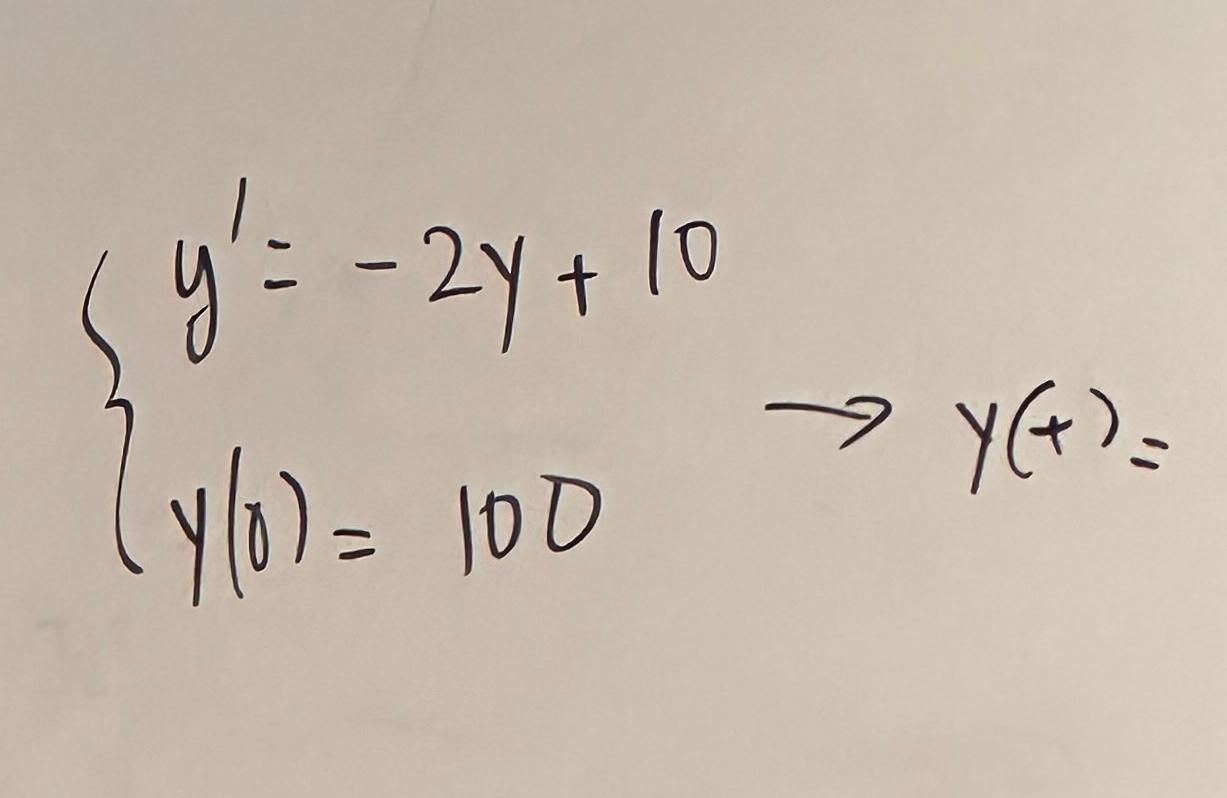 y' = -2y + 10
y(0) = 100
→ y(t) =